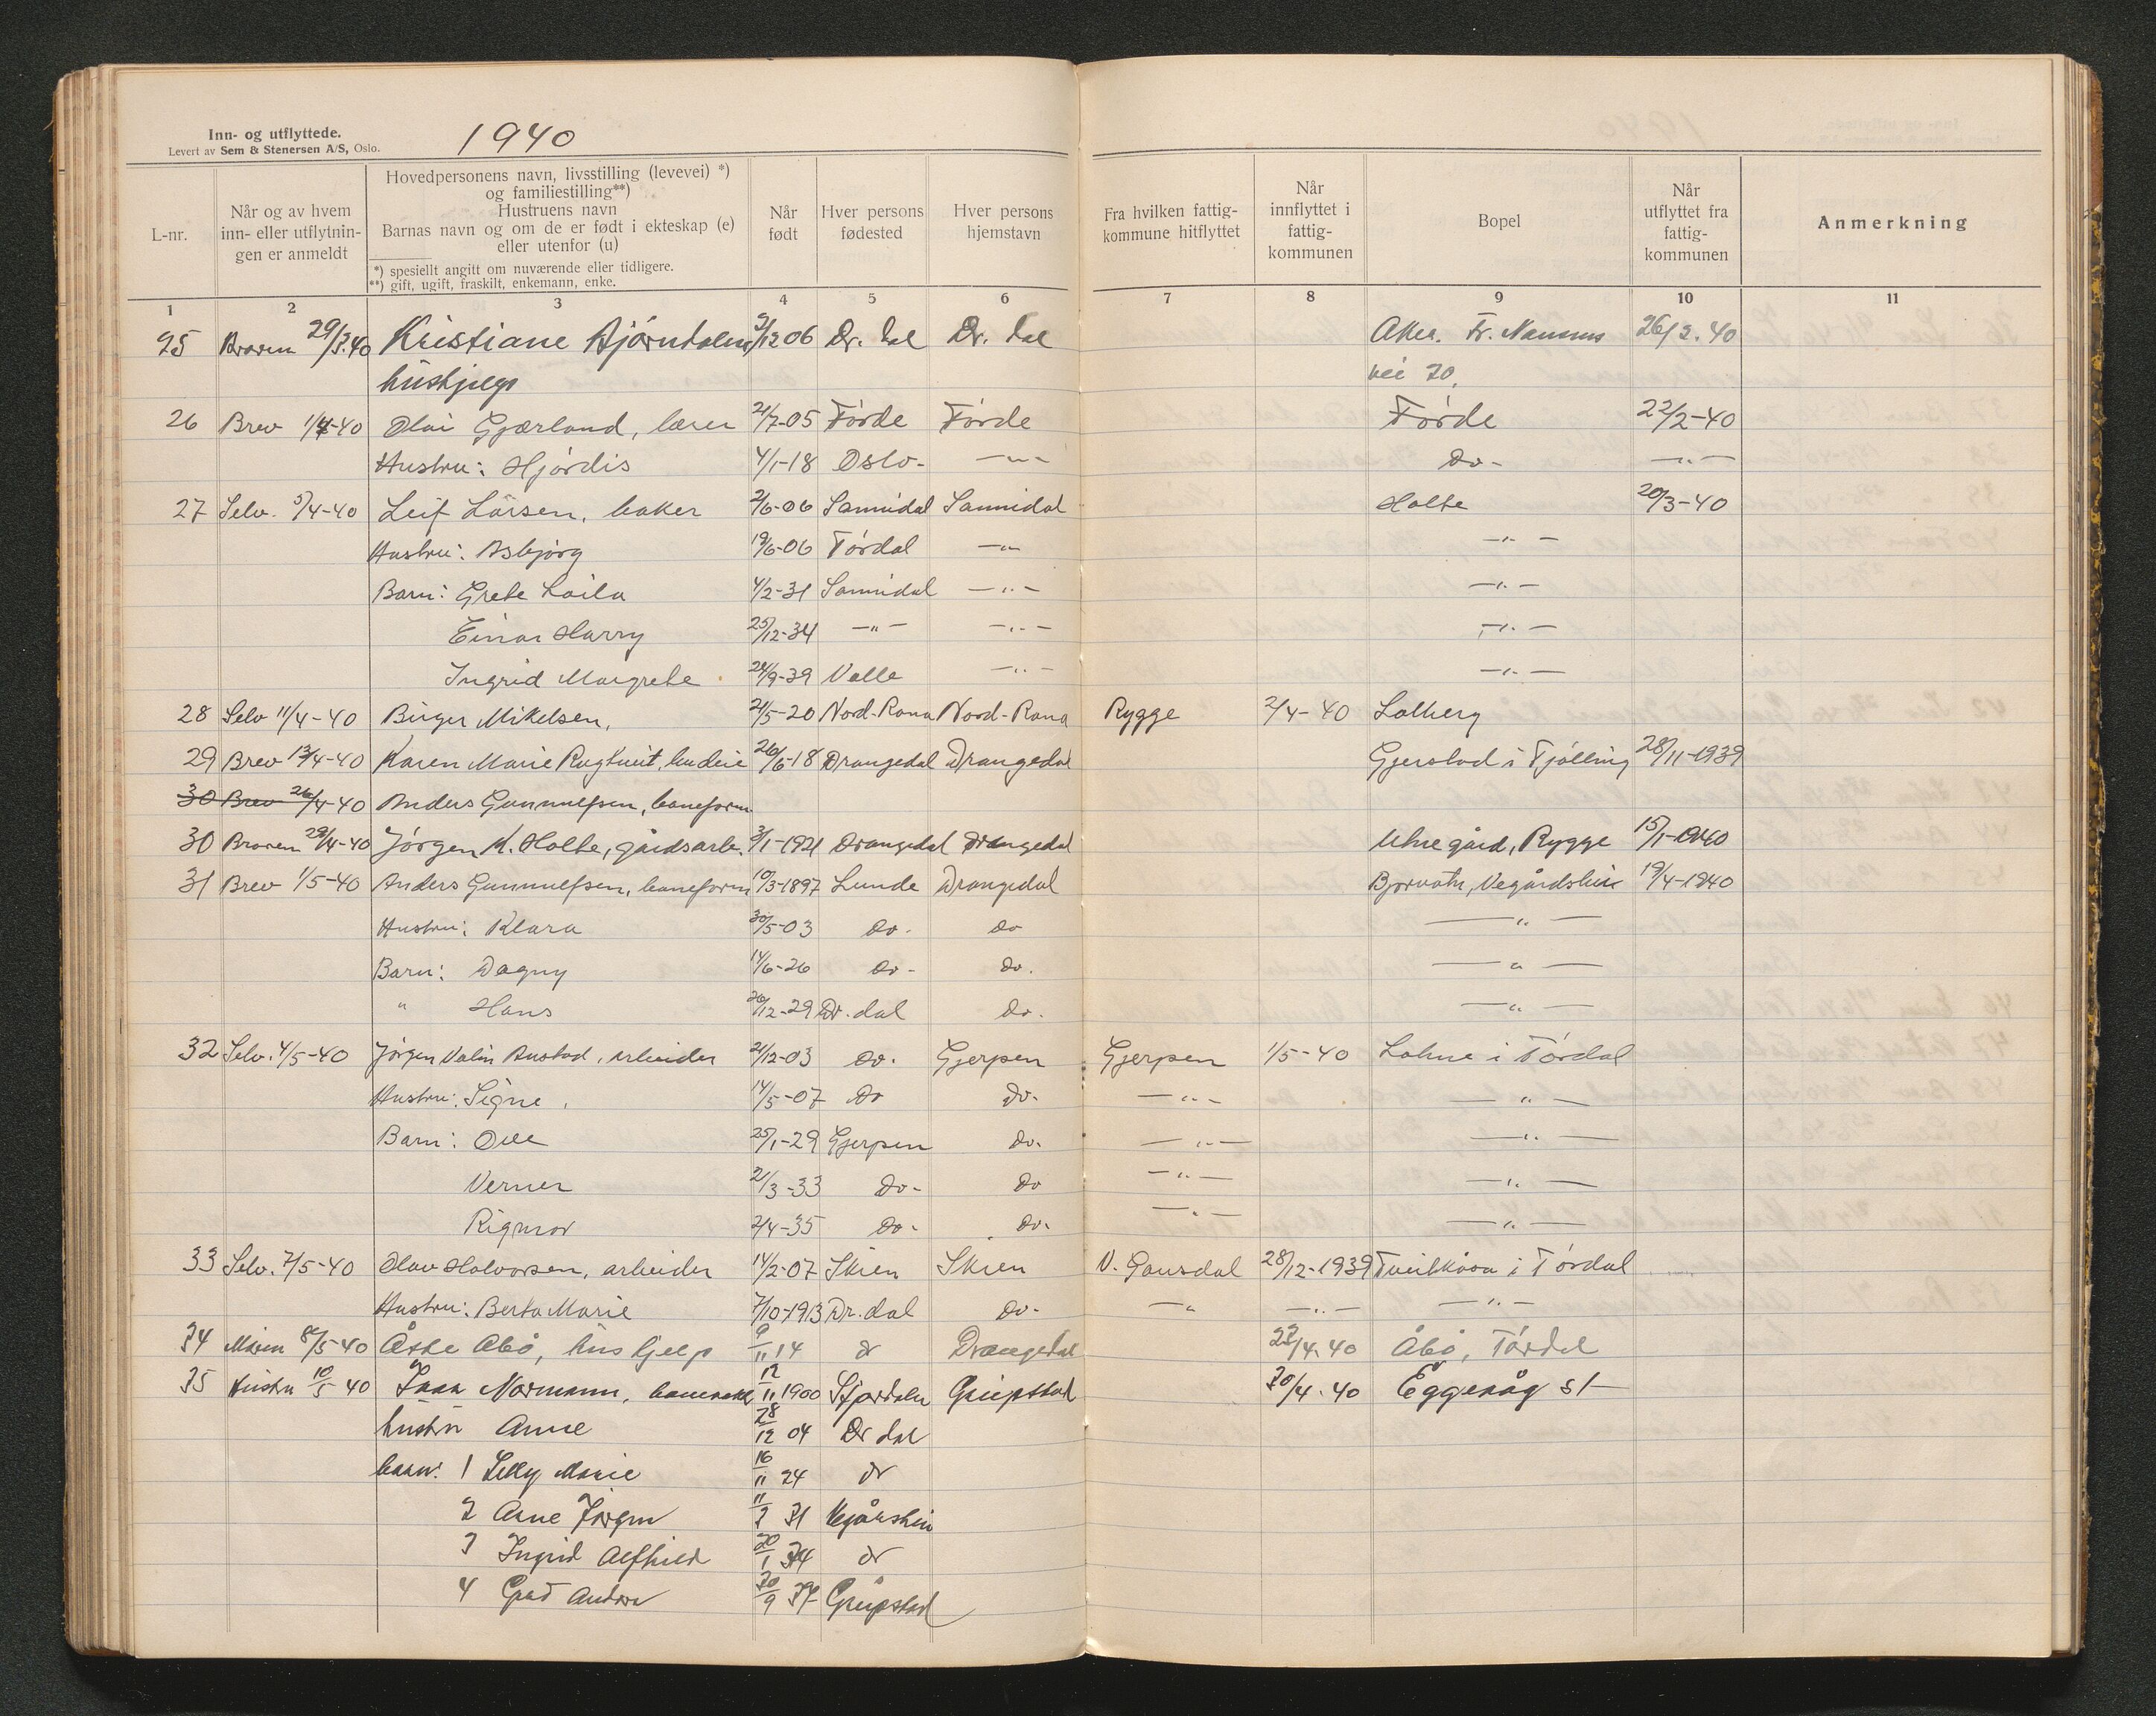 Inn- og utflyttede.
Levert av Sem & Stenersen A/S, Oslo.
1940
L-nr.
Når og av hvem inn- eller utflytnin-gen er anmeldt
Hovedpersonens navn, livsstilling (levevei) *) og familiestilling**)
Hustruens navn
Barnas navn og om de er født i ekteskap (e) eller utenfor (u)
*) spesiellt angitt om nuværende eller tidligere.
**) gift, ugift, fraskilt, enkemann, enke.
Når født
Hver persons fødested
Hver persons hjemstavn
Fra hvilken fattig-kommune hitflyttet
Når innflyttet i fattig-kommunen
Bopel
Når utflyttet fra fattig-kommunen
Anmerkning
1 2 3 4 5 6 7 8 9 10 11
25 29/3.40 Kristiane Bjørndalen 2/12 06 Dr. dal Dr. dal Aker. Fr. Nansens 26/2.40
hushjelp vei 20.
26 Brev 1/4-40 Olai Gjærland, lærer 21/7-05 Førde Førde Førde 22/2-40
Hustru: Hjørdis 4/1-18 Oslo - " - do - - " -
27 Selv. 5/4-40 Leif Larsen, baker 2/6-06 Sannidal Sannidal Holte 20/3-40
Hustru: Asbjørg 19/6-06 Tørdal - " - - " -
Barn: Grete Laila 4/2-31 Sannidal - " - - " -
Einar Harry 25/12-34 - " - - " - - " -
Ingrid Margrete 24/9-39 Valle - " - - " -
28 Selv 11/4-40 Birger Mikelsen, 21/5-20 Nord-Rana Nord-Rana Rygge 2/4-40 Solberg
29 Brev 13/4-40 Karen Marie Rugtveit, 26/6-18 Drangedal Drangedal Gjerstad i Tjølling 28/11-1939
30 Brev 26/4-40 Anders Gunnulfsen, baneform.
30 29/4-40 Jørgen K. Holte, gårdsarb. 3/1-1921 Drangedal Drangedal gård, Rygge 15/1-1940
31 Brev 1/5-40 Anders Gunnulfsen, baneform 10/3-1897 Lunde Drangedal Bjorvatn, Vegårdshei 19/4-1940
Hustru: Klara 30/5-03 do. do - " -
Barn: Dagny 14/6-26 do - do. - " -
" Hans 26/12-29 Dr. dal do. - " -
32 Selv. 4/5-40 Jørgen Austad, arbeider 21/12-03 do. Gjerpen Gjerpen 1/5-40 i Tørdal
Hustru: Signe. 14/5-07 do do. - " - - " -
Barn: 25/1-29 Gjerpen do. - " - - " -
Verner 2/3-33 do - do - " - - " -
Rigmor 2/4-35 do - do. - " - - " -
33 Selv. 7/5-40 Olav Halvorsen, arbeider 14/2-07 Skien Skien 28/12-1939 i Tørdal
Hustru: Berta Marie 7/10-1913 Dr. dal do. - " - - " - - " -
34 8/5-40 Åste Åbø, hus hjelp 9/11 14 dr Drangedal 22/4.40 Åbø, Tørdal
35 Hustru 10/5 40 Normann, 12/11 1900 Stjørdalen 30/4.40 st
hustru Anne 28/12 04 Dr dal
barn: 1 Lilly Marie 16/11 24 dr
2 Arne Jørgen 11/2 31 Vegårshei
3 Ingrid Alfhild 20/1 34 dr
4 30/9